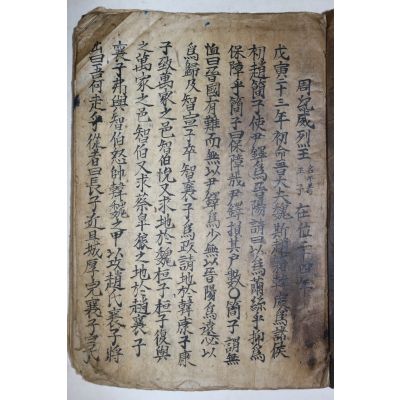 周紀威烈王 名午考王子 在位二十四年
戊寅二十三年初命晋大夫魏斯趙籍韓虔爲諸侯
初趙簡子使尹鐸爲晋陽請曰以爲繭絲乎抑爲
保障乎簡子曰保障哉尹鐸損其戶數〇簡子謂無
恤曰晋國有難而無以尹鐸爲少無以晋陽爲遠必以
爲歸及智宣子卒智襄子爲政請地於韓康子康
子致萬家之邑智伯悅又求地於魏桓子桓子復與
之萬家之邑智伯又求蔡皐狼之地於趙襄子
襄子弗與智伯怒帥韓魏之甲以攻趙氏襄子將
出曰吾何走乎從者曰長子近且城厚完襄子曰民